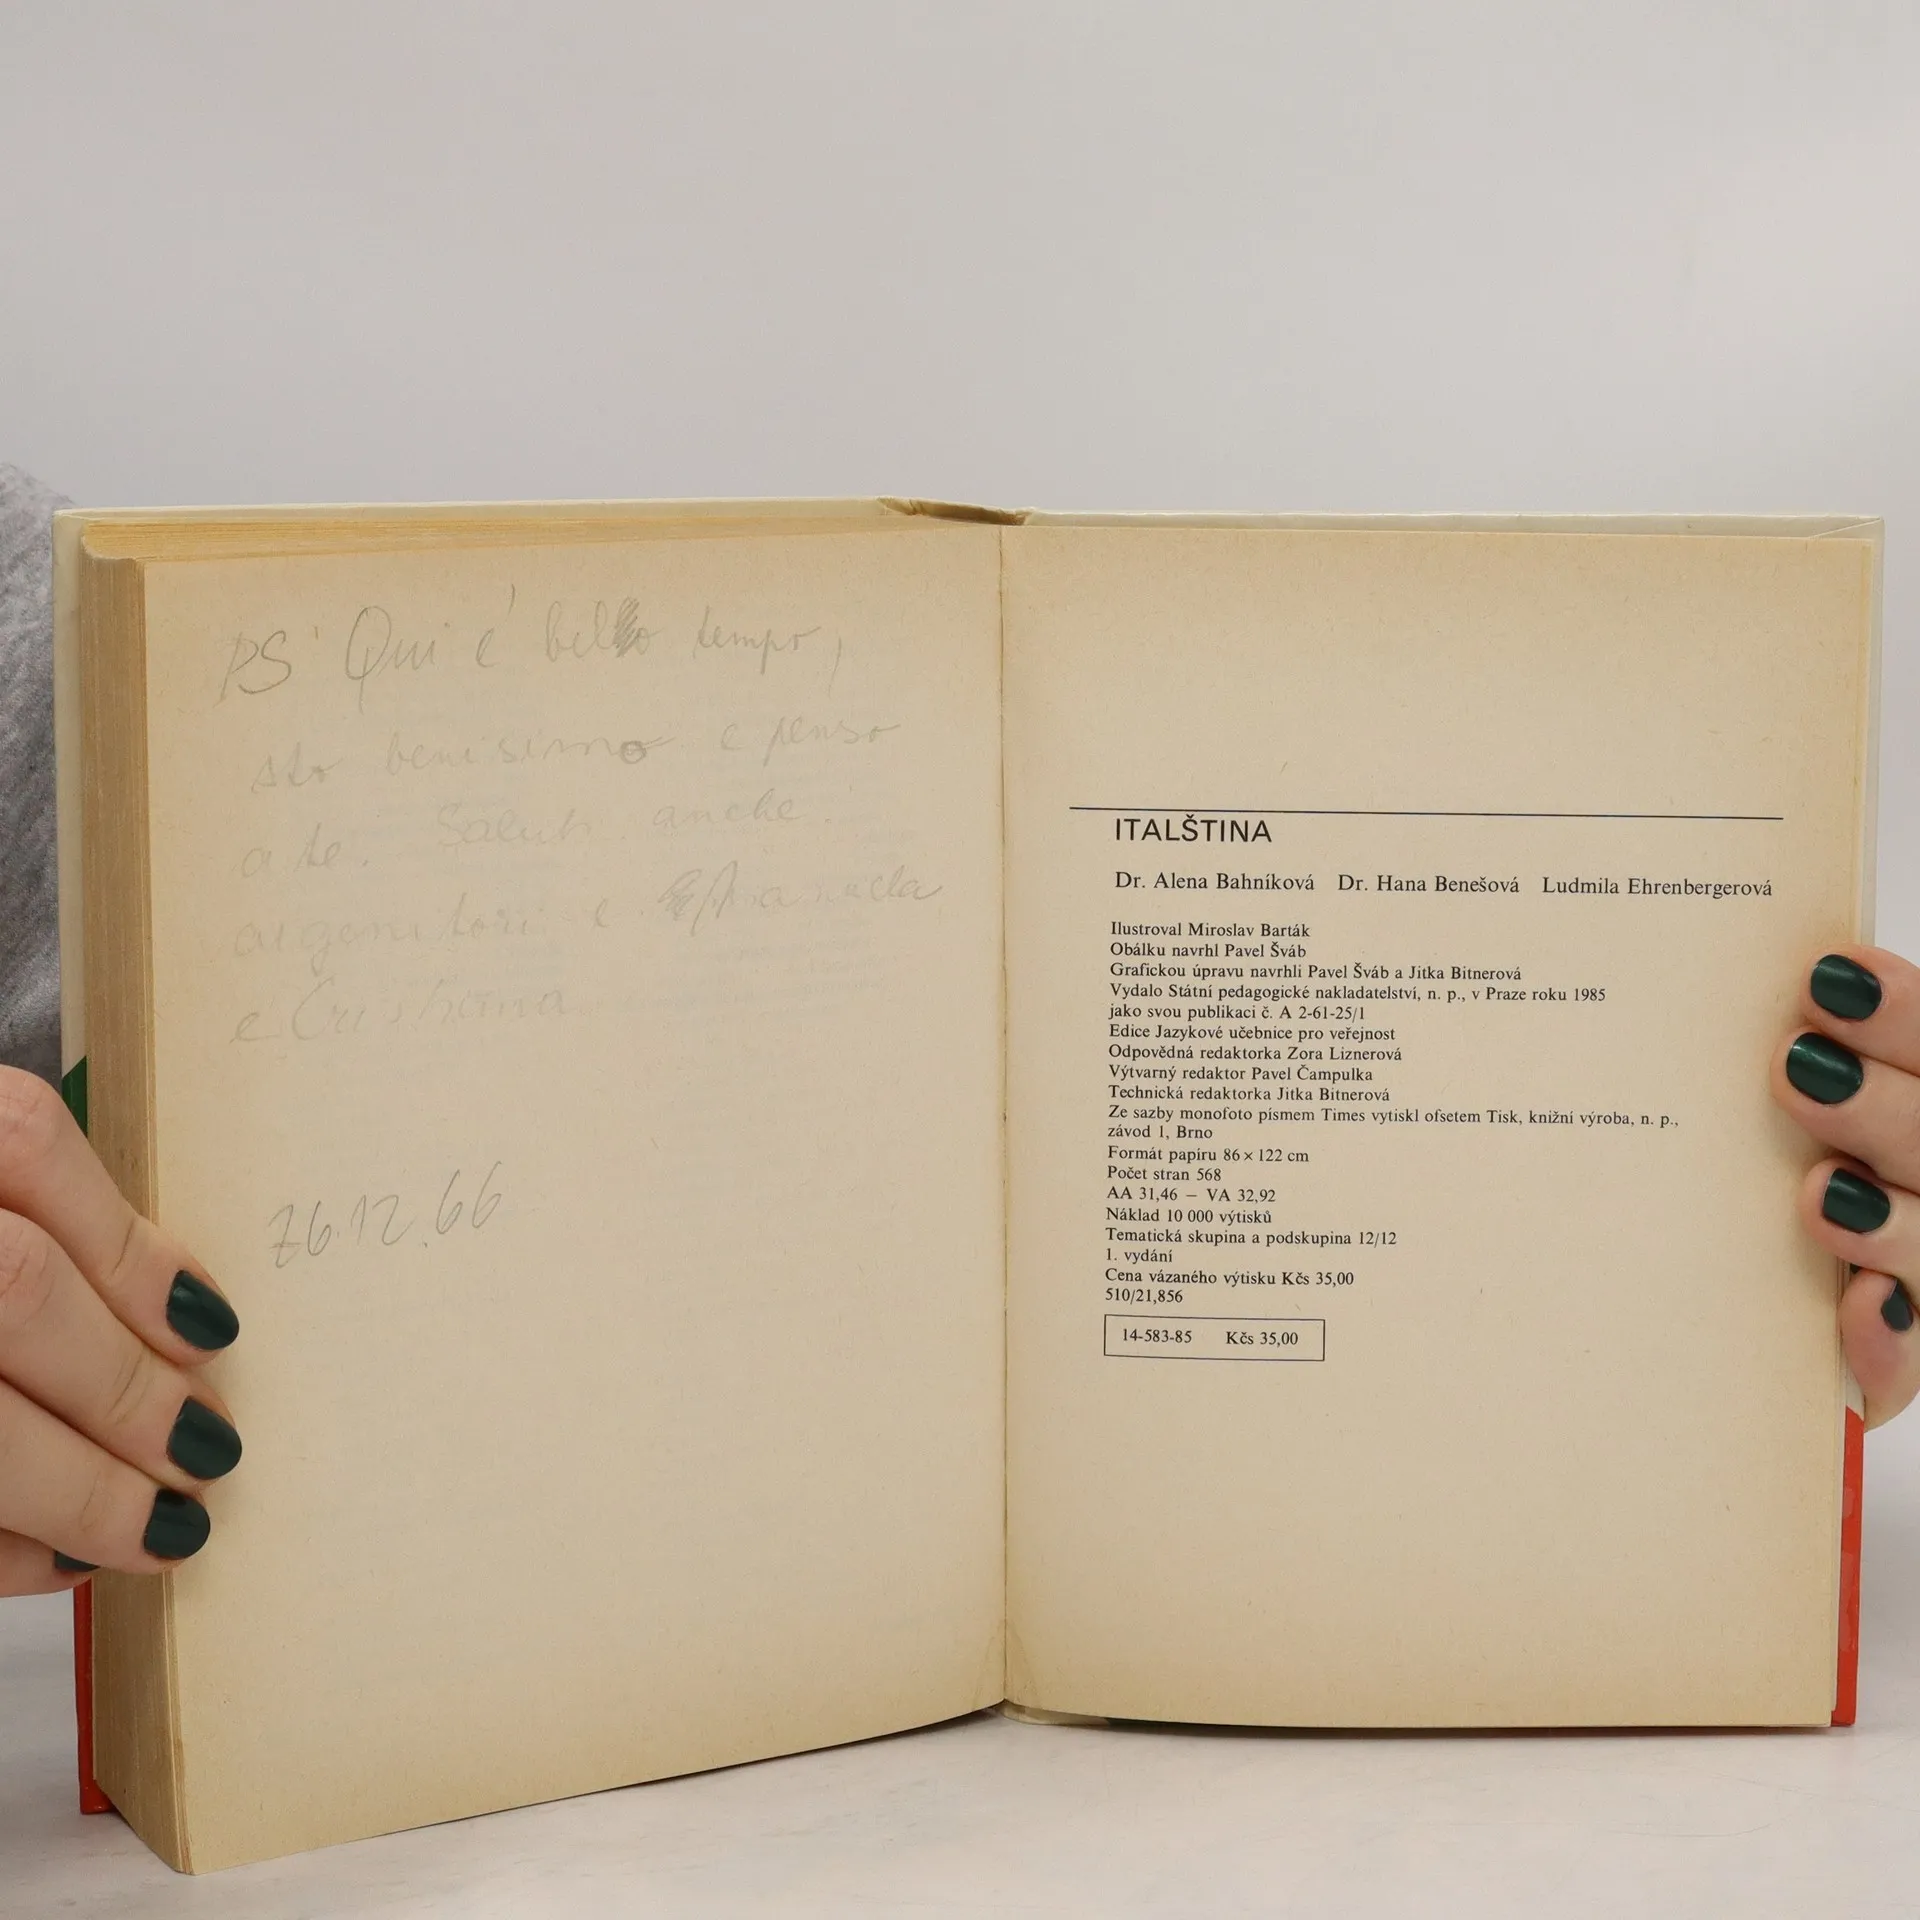 PS Qui é bello tempo,
sto benisimo e penso
a te. Saluti anche
ai genitori e
e Cristina
26.12.66
ITALŠTINA
Dr. Alena Bahníková Dr. Hana Benešová Ludmila Ehrenbergerová
Ilustroval Miroslav Barták
Obálku navrhl Pavel Šváb
Grafickou úpravu navrhli Pavel Šváb a Jitka Bitnerová
Vydalo Státní pedagogické nakladatelství, n. p., v Praze roku 1985
jako svou publikaci č. A 2-61-25/1
Edice Jazykové učebnice pro veřejnost
Odpovědná redaktorka Zora Liznerová
Výtvarný redaktor Pavel Čampulka
Technická redaktorka Jitka Bitnerová
Ze sazby monofoto písmem Times vytiskl ofsetem Tisk, knižní výroba, n. p.,
závod 1, Brno
Formát papíru 86 × 122 cm
Počet stran 568
AA 31,46 – VA 32,92
Náklad 10 000 výtisků
Tematická skupina a podskupina 12/12
1. vydání
Cena vázaného výtisku Kčs 35,00
510/21,856
14-583-85 Kčs 35,00